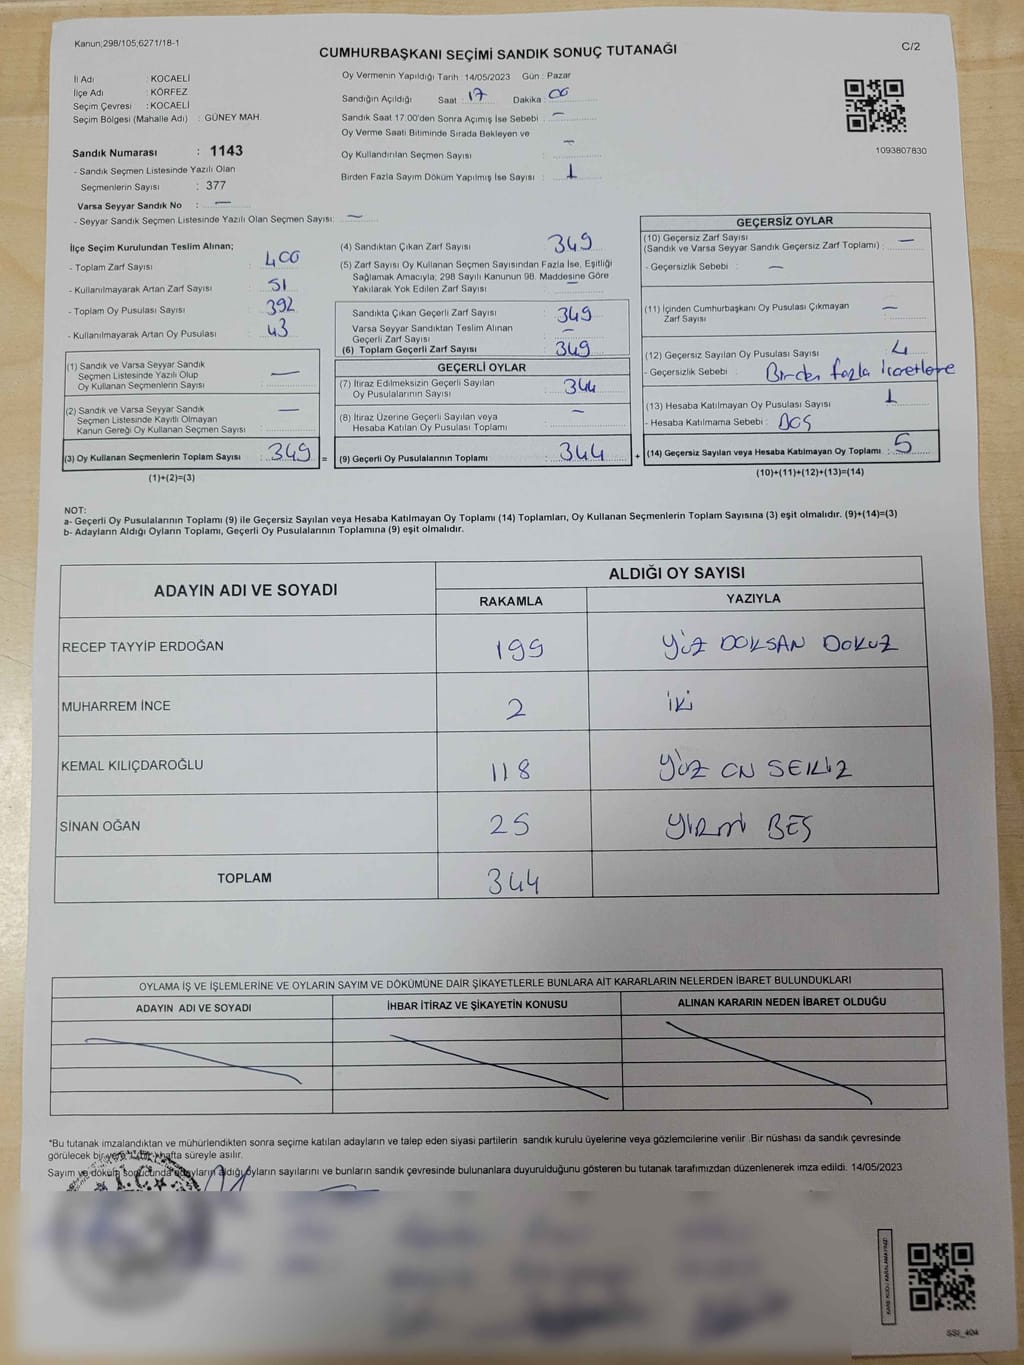 Kanun;298/105;6271/18-1
CUMHURBAŞKANI SEÇİMİ SANDIK SONUÇ TUTANAĞI
C/2
İl Adı : KOCAELİ
İlçe Adı : KÖRFEZ
Seçim Çevresi : KOCAELİ
Seçim Bölgesi (Mahalle Adı) : GÜNEY MAH.
Sandık Numarası : 1143
- Sandık Seçmen Listesinde Yazılı Olan
Seçmenlerin Sayısı : 377
Varsa Seyyar Sandık No : —
- Seyyar Sandık Seçmen Listesinde Yazılı Olan Seçmen Sayısı: —
Oy Vermenin Yapıldığı Tarih : 14/05/2023 Gün : Pazar
Sandığın Açıldığı Saat : 17 Dakika : 00
Sandık Saat 17:00'den Sonra Açımış İse Sebebi : —
Oy Verme Saati Bitiminde Sırada Bekleyen ve
Oy Kullandırılan Seçmen Sayısı : —
Birden Fazla Sayım Döküm Yapılmış İse Sayısı : 1
1093807830
İlçe Seçim Kurulundan Teslim Alınan;
- Toplam Zarf Sayısı : 400
- Kullanılmayarak Artan Zarf Sayısı : 51
- Toplam Oy Pusulası Sayısı : 392
- Kullanılmayarak Artan Oy Pusulası : 43
(1) Sandık ve Varsa Seyyar Sandık
Seçmen Listesinde Yazılı Olup
Oy Kullanan Seçmenlerin Sayısı : —
(2) Sandık ve Varsa Seyyar Sandık
Seçmen Listesinde Kayıtlı Olmayan
Kanun Gereği Oy Kullanan Seçmen Sayısı : —
(3) Oy Kullanan Seçmenlerin Toplam Sayısı : 349 =
(1)+(2)=(3)
(4) Sandıktan Çıkan Zarf Sayısı : 349
(5) Zarf Sayısı Oy Kullanan Seçmen Sayısından Fazla İse, Eşitliği
Sağlamak Amacıyla, 298 Sayılı Kanunun 98. Maddesine Göre
Yakılarak Yok Edilen Zarf Sayısı : —
Sandıkta Çıkan Geçerli Zarf Sayısı : 349
Varsa Seyyar Sandıktan Teslim Alınan
Geçerli Zarf Sayısı : —
(6) Toplam Geçerli Zarf Sayısı : 349
GEÇERLİ OYLAR
(7) İtiraz Edilmeksizin Geçerli Sayılan
Oy Pusulalarının Sayısı : 344
(8) İtiraz Üzerine Geçerli Sayılan veya
Hesaba Katılan Oy Pusulası Toplamı : —
(9) Geçerli Oy Pusulalarının Toplamı : 344 +
GEÇERSİZ OYLAR
(10) Geçersiz Zarf Sayısı
(Sandık ve Varsa Seyyar Sandık Geçersiz Zarf Toplamı) : —
- Geçersizlik Sebebi : —
(11) İçinden Cumhurbaşkanı Oy Pusulası Çıkmayan
Zarf Sayısı : —
(12) Geçersiz Sayılan Oy Pusulası Sayısı : 4
- Geçersizlik Sebebi : Birden fazla İşaretleme
(13) Hesaba Katılmayan Oy Pusulası Sayısı : 1
- Hesaba Katılmama Sebebi : BOŞ
(14) Geçersiz Sayılan veya Hesaba Katılmayan Oy Toplamı : 5
(10)+(11)+(12)+(13)=(14)
NOT:
a- Geçerli Oy Pusulalarının Toplamı (9) ile Geçersiz Sayılan veya Hesaba Katılmayan Oy Toplamı (14) Toplamları, Oy Kullanan Seçmenlerin Toplam Sayısına (3) eşit olmalıdır. (9)+(14)=(3)
b- Adayların Aldığı Oyların Toplamı, Geçerli Oy Pusulalarının Toplamına (9) eşit olmalıdır.
ADAYIN ADI VE SOYADI
ALDIĞI OY SAYISI
RAKAMLA YAZIYLA
RECEP TAYYİP ERDOĞAN 199 YÜZ DOKSAN DOKUZ
MUHARREM İNCE 2 İKİ
KEMAL KILIÇDAROĞLU 118 YÜZ ON SEKİZ
SİNAN OĞAN 25 YİRMİ BEŞ
TOPLAM 344
OYLAMA İŞ VE İŞLEMLERİNE VE OYLARIN SAYIM VE DÖKÜMÜNE DAİR ŞİKAYETLERLE BUNLARA AİT KARARLARIN NELERDEN İBARET BULUNDUKLARI
ADAYIN ADI VE SOYADI İHBAR İTİRAZ VE ŞİKAYETİN KONUSU ALINAN KARARIN NEDEN İBARET OLDUĞU
*Bu tutanak imzalandıktan ve mühürlendikten sonra seçime katılan adayların ve talep eden siyasi partilerin sandık kurulu üyelerine veya gözlemcilerine verilir. Bir nüshası da sandık çevresinde
görülecek bir yere bir hafta süreyle asılır.
Sayım ve döküm sonucunda adayların aldığı oyların sayılarını ve bunların sandık çevresinde bulunanlara duyurulduğunu gösteren bu tutanak tarafımızdan düzenlenerek imza edildi. 14/05/2023
T.C.
KARE KODU KARALAMAYINIZ!
SSI_404